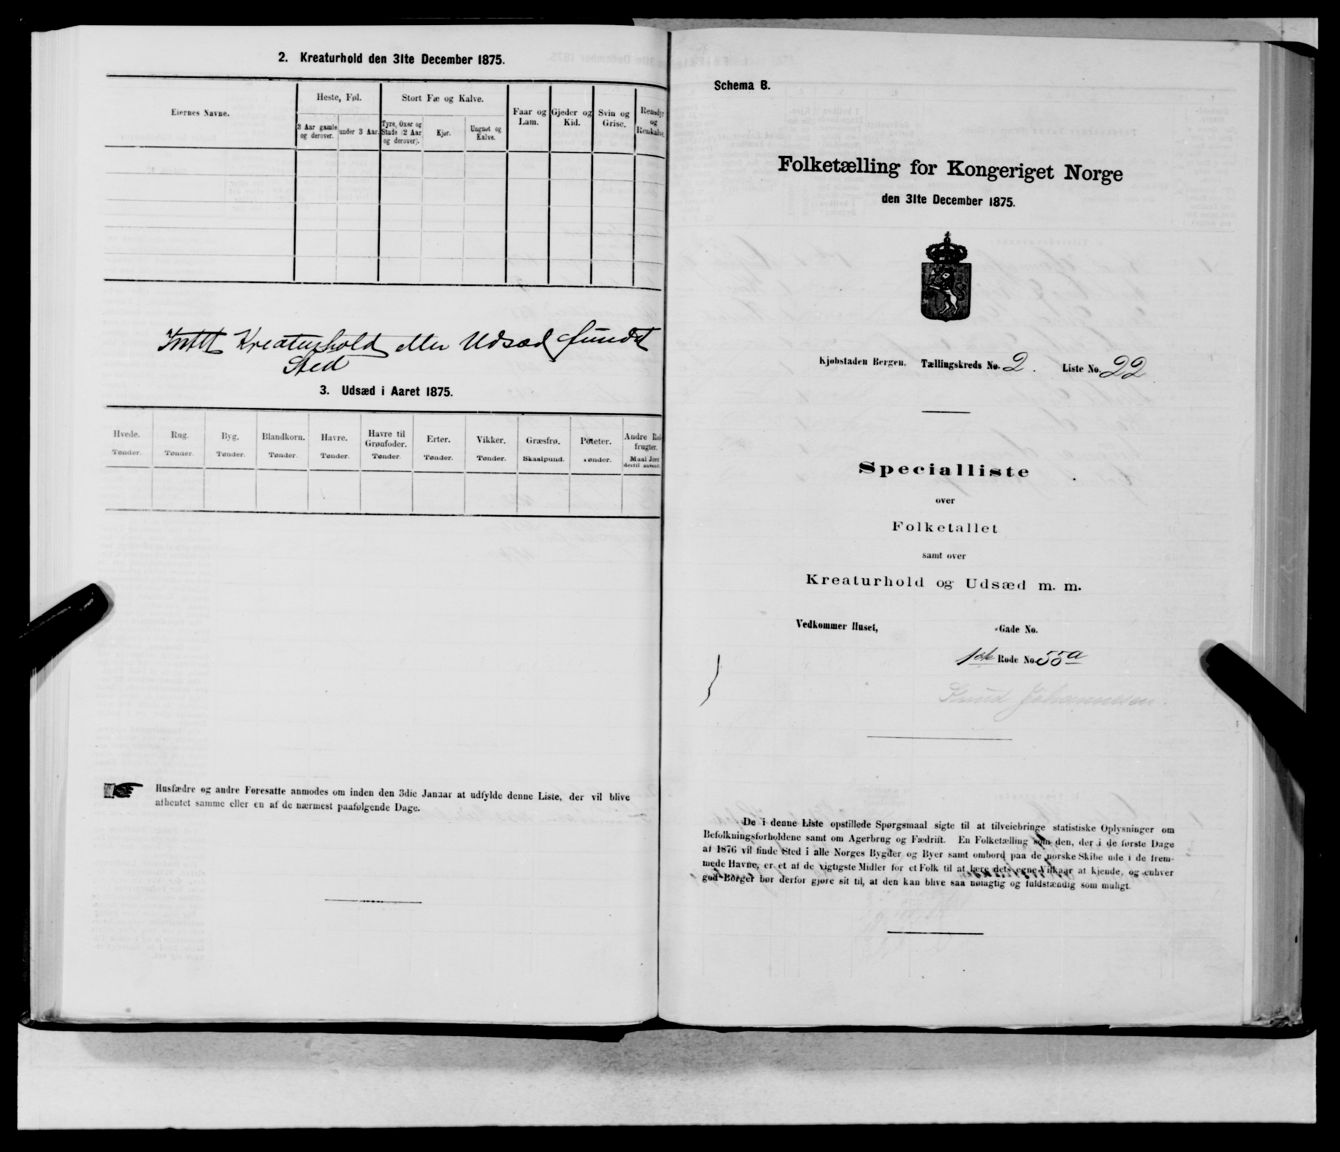 2. Kreaturhold den 31te December 1875.
Eiernes Navne.
Heste, Føl.
Stort Fæ og Kalve.
Faar og Lam.
Gjeder og Kid.
Svin og Grise.
Rensdyr og Renkalve.
3 Aar gamle og derover.
under 3 Aar.
Tyre, Oxer og Stude (2 Aar og derover).
Kjør.
Ungnøt og Kalve.
Intet Kreaturhold eller Udsæd fundet
Sted
3. Udsæd i Aaret 1875.
Hvede. Rug. Byg. Blandkorn. Havre. Havre til Grønfoder. Erter. Vikker. Græsfrø. Poteter. Andre Rodfrugter.
Tønder. Tønder. Tønder. Tønder. Tønder. Tønder. Tønder. Tønder. Skaalpund. Tønder. Maal Jord
Husfædre og andre Foresatte anmodes om inden den 3die Januar at udfylde denne Liste, der vil blive
afhentet samme eller en af de nærmest paafølgende Dage.
Schema B.
Folketælling for Kongeriget Norge
den 31te December 1875.
Kjøbstaden Bergen. Tællingskreds No. 2. Liste No. 22
Specialliste
over
Folketallet
samt over
Kreaturhold og Udsæd m. m.
Vedkommer Huset, -Gade No.
1ste Rode No. 55a
Knud Johannesen
De i denne Liste opstillede Spørgsmaal sigte til at tilveiebringe statistiske Oplysninger om
Befolkningsforholdene samt om Agerbrug og Fædrift. En Folketælling som den, der i de første Dage
af 1876 vil finde Sted i alle Norges Bygder og Byer samt ombord paa de norske Skibe ude i de frem-
mede Havne, er et af de vigtigste Midler for et Folk til at lære dets egne Vilkaar at kjende, og enhver
god Borger bør derfor gjøre sit til, at den kan blive saa nøiagtig og fuldstændig som muligt.